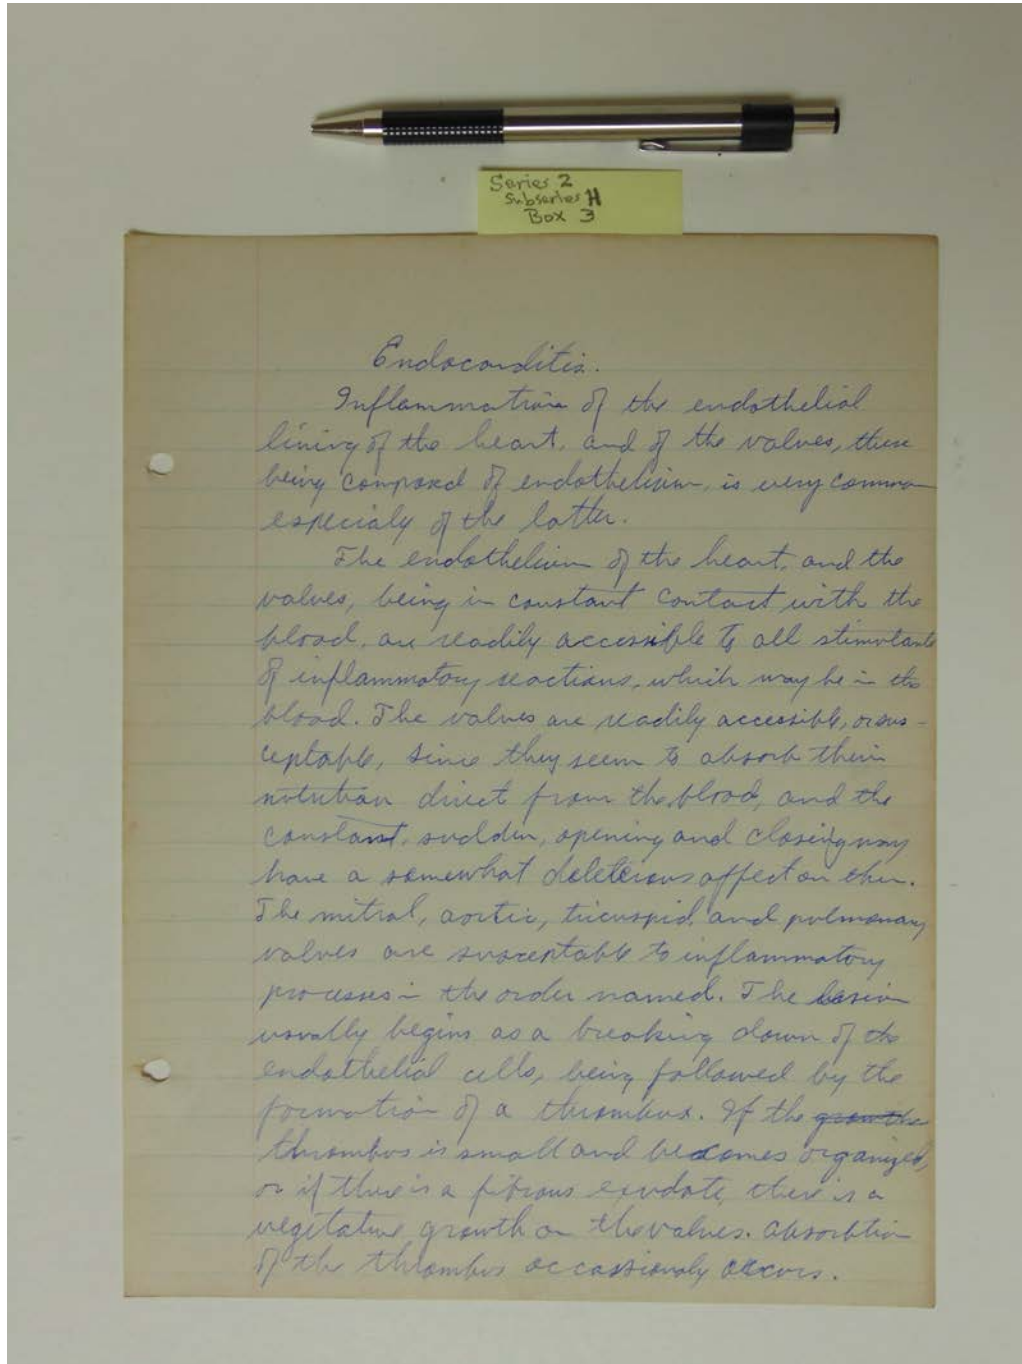 Series 2
Subseries H
Box 3
Endocarditis.
Inflammation of the endothelial
lining of the heart, and of the valves, these
being composed of endothelium, is very common
especialy of the latter.
The endothelium of the heart, and the
valves, being in constant contact with the
blood, are readily accessible to all stimulants
of inflammatory reactions, which may be in the
blood. The valves are readily accessible, or sus-
ceptable, since they seem to absorb their
nutrition direct from the blood, and the
constant, sudden, opening and closing may
have a somewhat deleterous affect on them.
The mitral, aortic, tricuspid, and pulmonary
valves are susceptable to inflammatory
processes in the order named. The lesion
usually begins as a breaking down of the
endothelial cells, being followed by the
formation of a thrombus. If the growths
thrombus is small and becomes organized,
or if there is a fibrous exudate, there is a
vegitative growth on the valves. Absorbtion
of the thrombus occassionaly occurs.